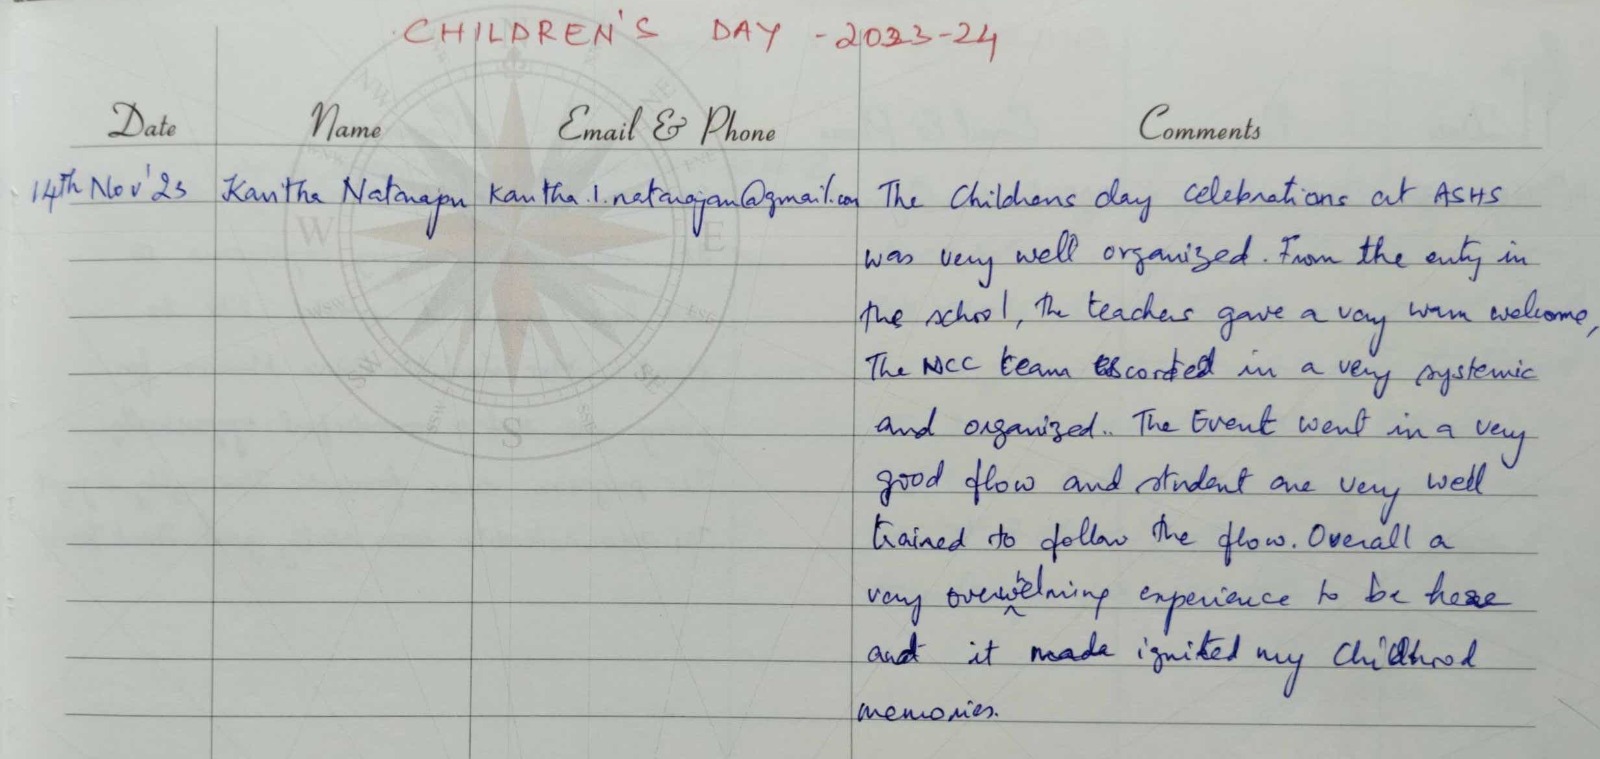 CHILDREN'S DAY - 2023-24
Date Name Email & Phone Comments
14th Nov'23 Kavitha Natarajan kavitha.l.natarajan@gmail.com The Childrens day celebrations at ASHS
was very well organized. From the entry in
the school, the teachers gave a very warm welcome,
The NCC team escorted in a very systemic
and organized.. The Event went in a very
good flow and student are very well
trained to follow the flow. Overall a
very overwelming experience to be here
and it made ignited my Childhood
memories.
NW
W E
WSW ENE
ESE
SW SE
SSW SSE
S